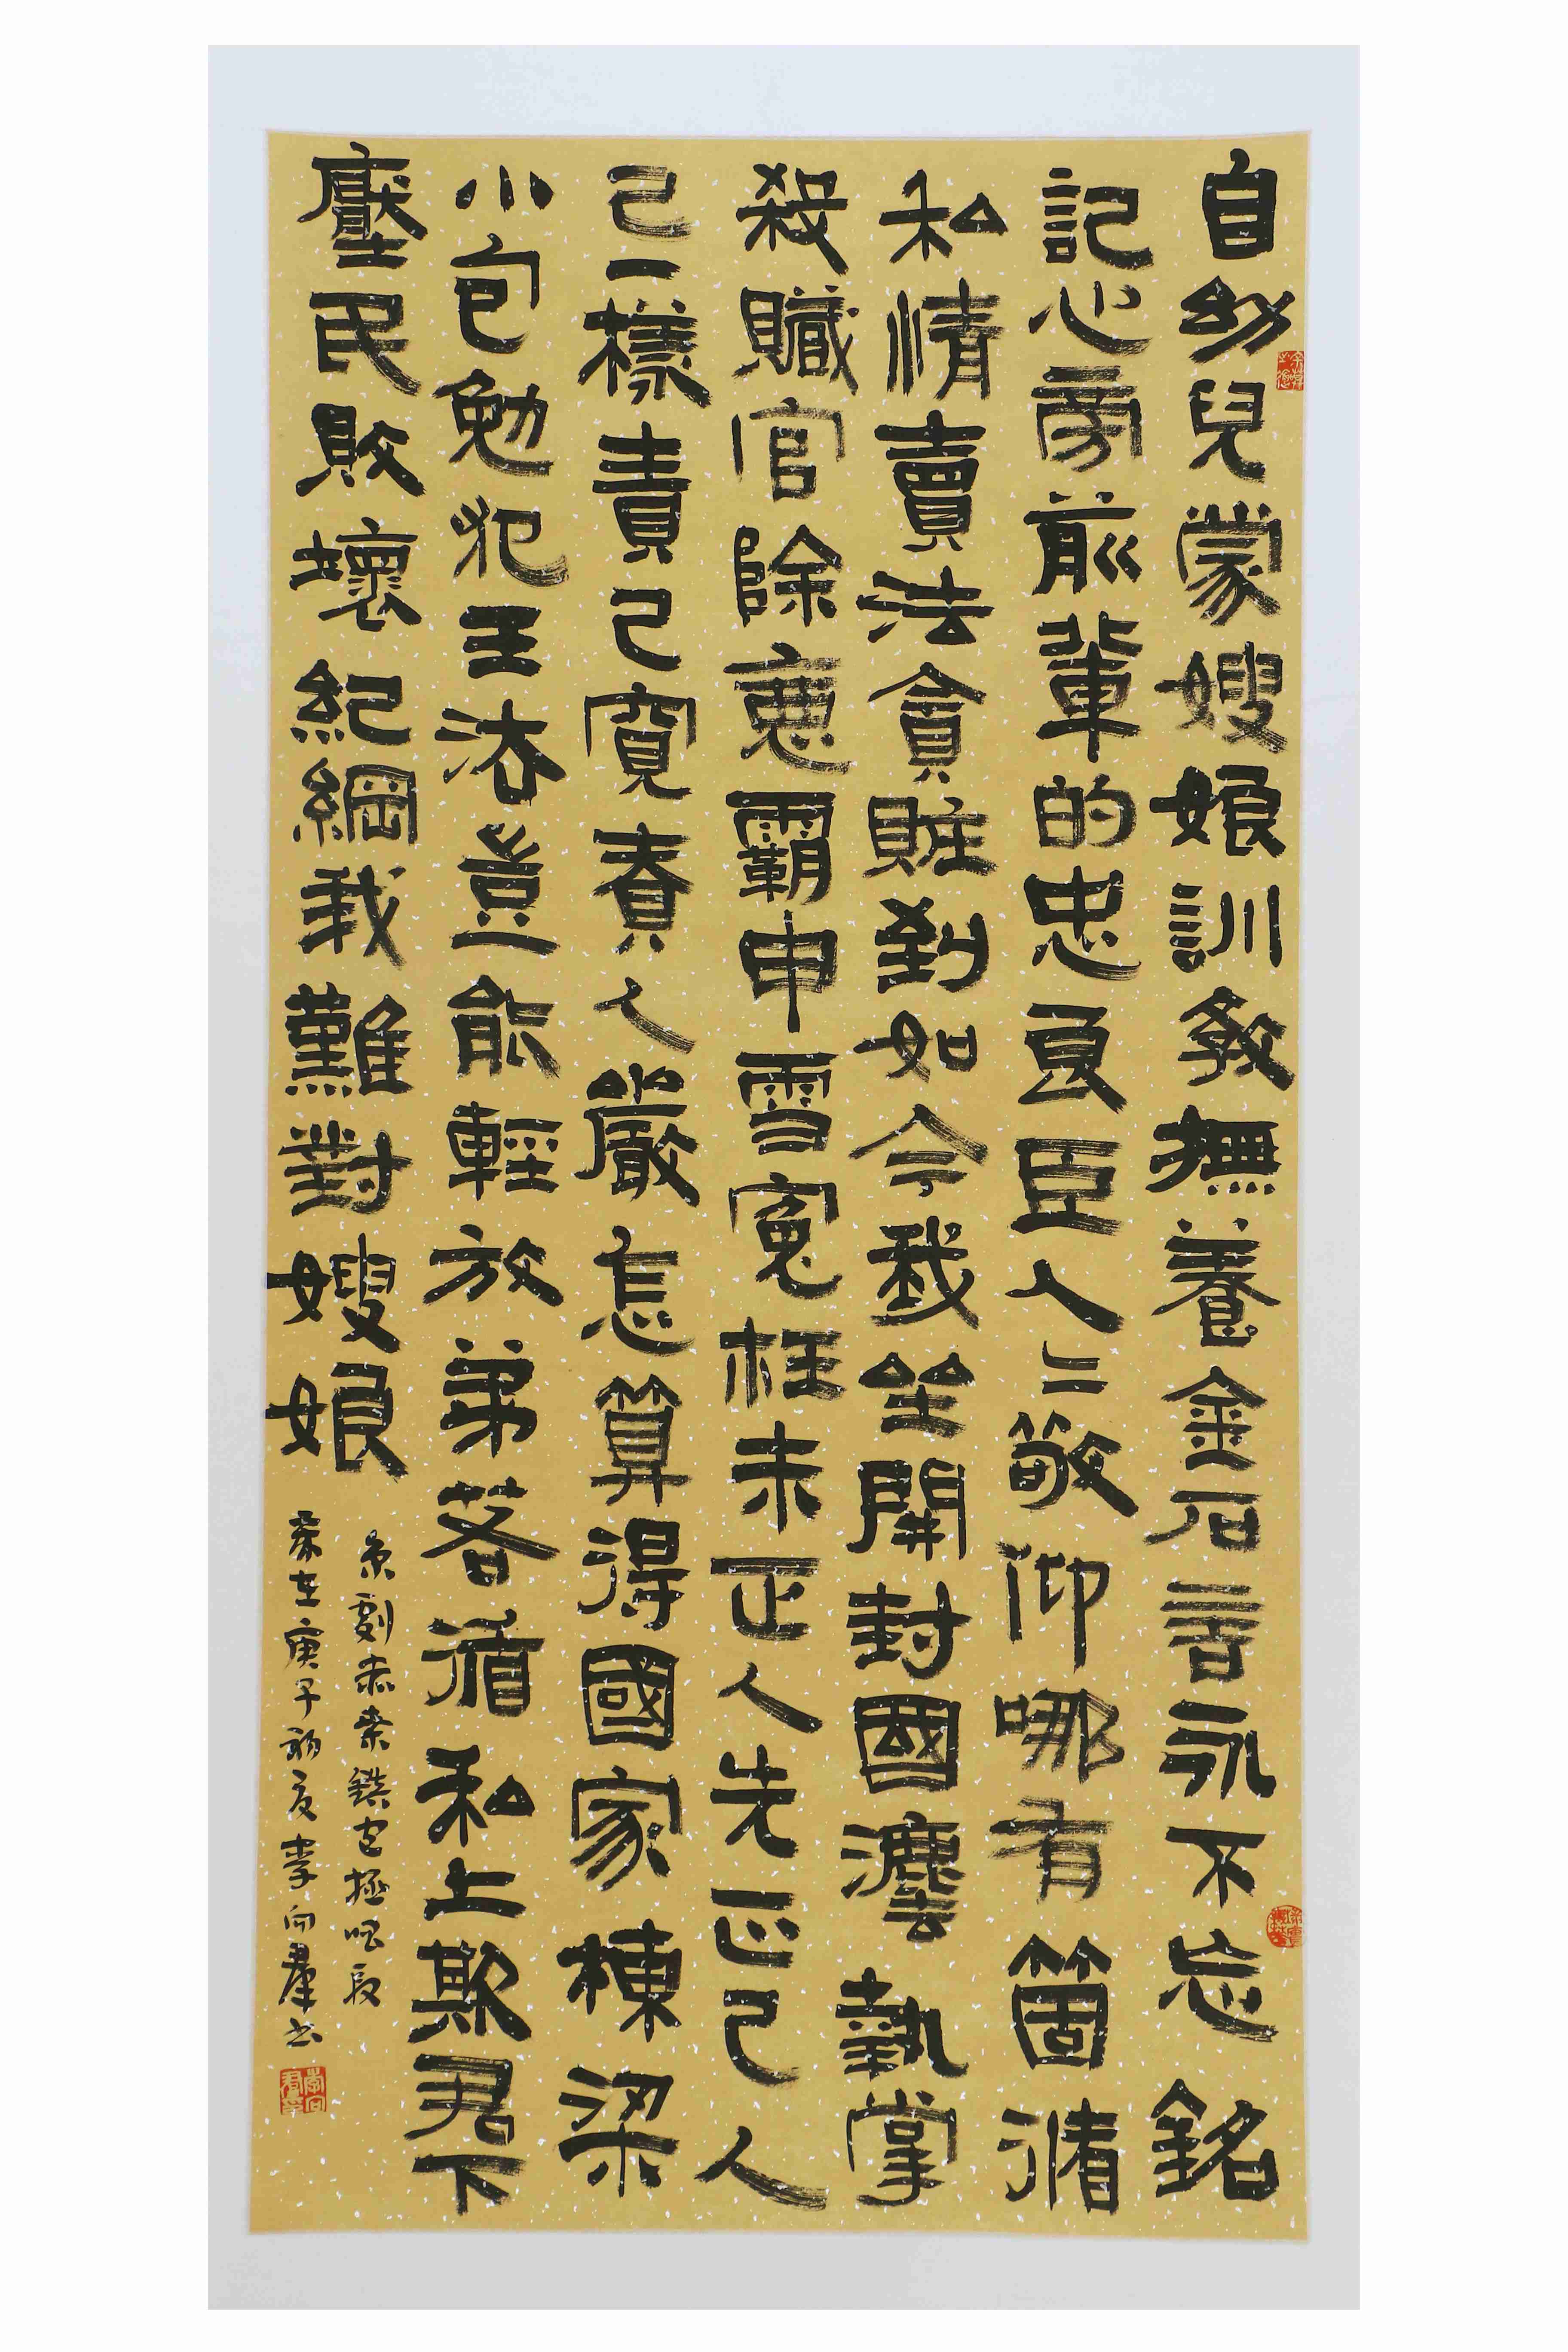 自幼兒蒙嫂娘訓教撫養金石言永不忘銘
記心旁前輩的忠良臣人人敬仰哪有箇循
私情賣法貪贓到如今我坐開封國法執掌
殺贓官除惡霸申雪冤枉未正人先正己人
己一樣責己寬責人嚴怎算得國家棟梁
小包勉犯王法豈能輕放弟若循私上欺君下
壓民敗壞紀綱我難對嫂娘
京劇赤桑鎮包拯唱段
歲在庚子初夏李向群書